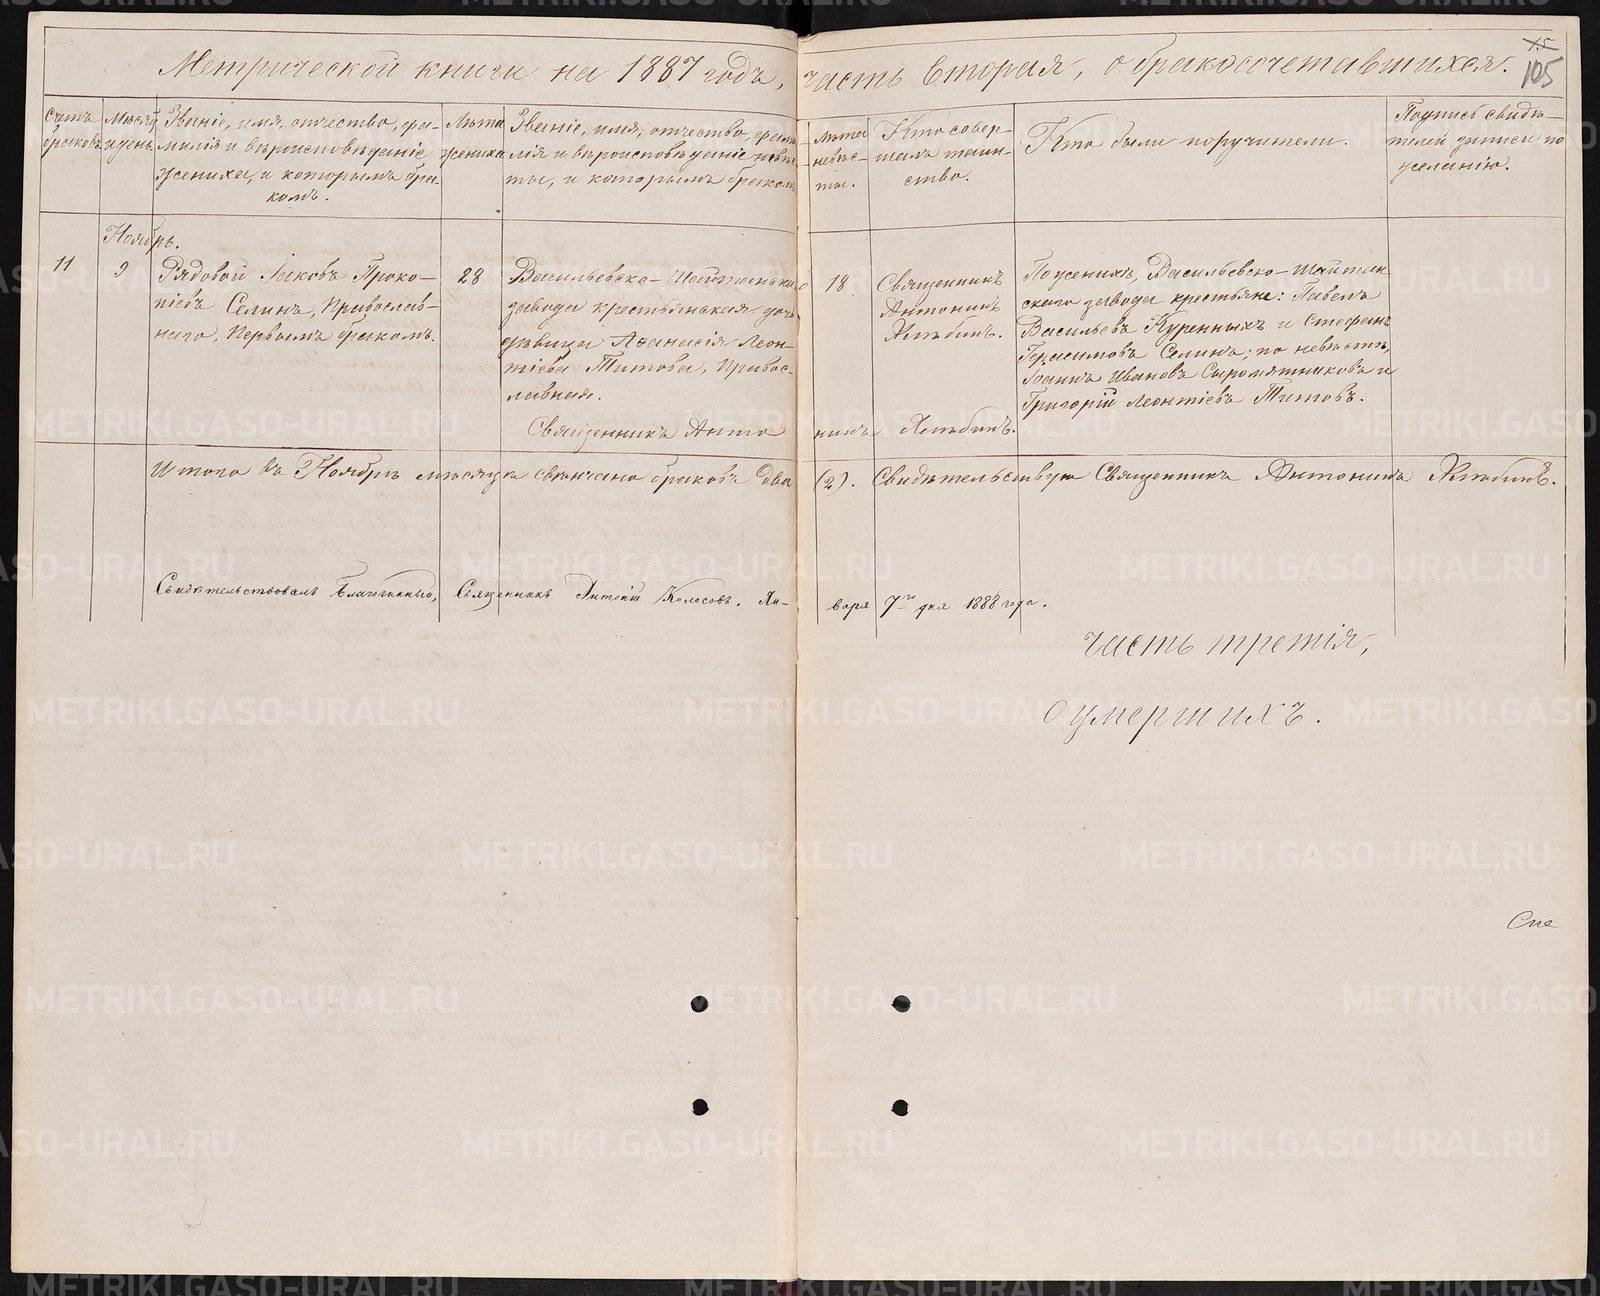 Метрической книги на 1887 годъ, часть вторая, о бракосочетавшихся.
15
105
Счетъ браковъ
Мѣсяцъ и день
Званіе, имя, отчество, фа-
милія и вѣроисповѣданіе
жениха, и которымъ бра-
комъ.
Лѣта
жениха
Званіе, имя, отчество, фами-
лія и вѣроисповѣданіе невѣс-
ты, и которымъ бракомъ
Лѣта
невѣс-
ты.
Кто совер-
шалъ таин-
ство.
Кто были поручители.
Подпись свидѣ-
телей записи по
желанію.
Ноябрь.
11
9
Рядовой Іаковъ Проко-
піевъ Селинъ, Православ-
наго, Первымъ бракомъ.
28
Васильевско-Шайтанскаго
завода крестьянская дочь
дѣвица Аѳанасія Леон-
тіева Титова, Правос-
лавная.
18
Священникъ
Антонинъ
Хлѣбинъ.
По женихѣ, Васильевско-Шайтан
скаго завода крестьяне: Павелъ
Васильевъ Куренныхъ и Стефанъ
Герасимовъ Селинъ; по невѣстѣ,
Іоаннъ Ивановъ Сыромятниковъ и
Григорій Леонтіевъ Титовъ.
Священникъ Анто нинъ Хлѣбинъ.
Итого въ Ноябрѣ мѣсяцѣ свѣнчано браковъ два (2). Свидѣтельствую Священникъ Антонинъ Хлѣбинъ.
Свидѣтельствовалъ Благочинный, Священникъ Антоній Колосовъ. Ян- варя 7го дня 1888 года.
Часть третія,
О умершихъ.
Свѣ
METRIKI.GASO-URAL.RU